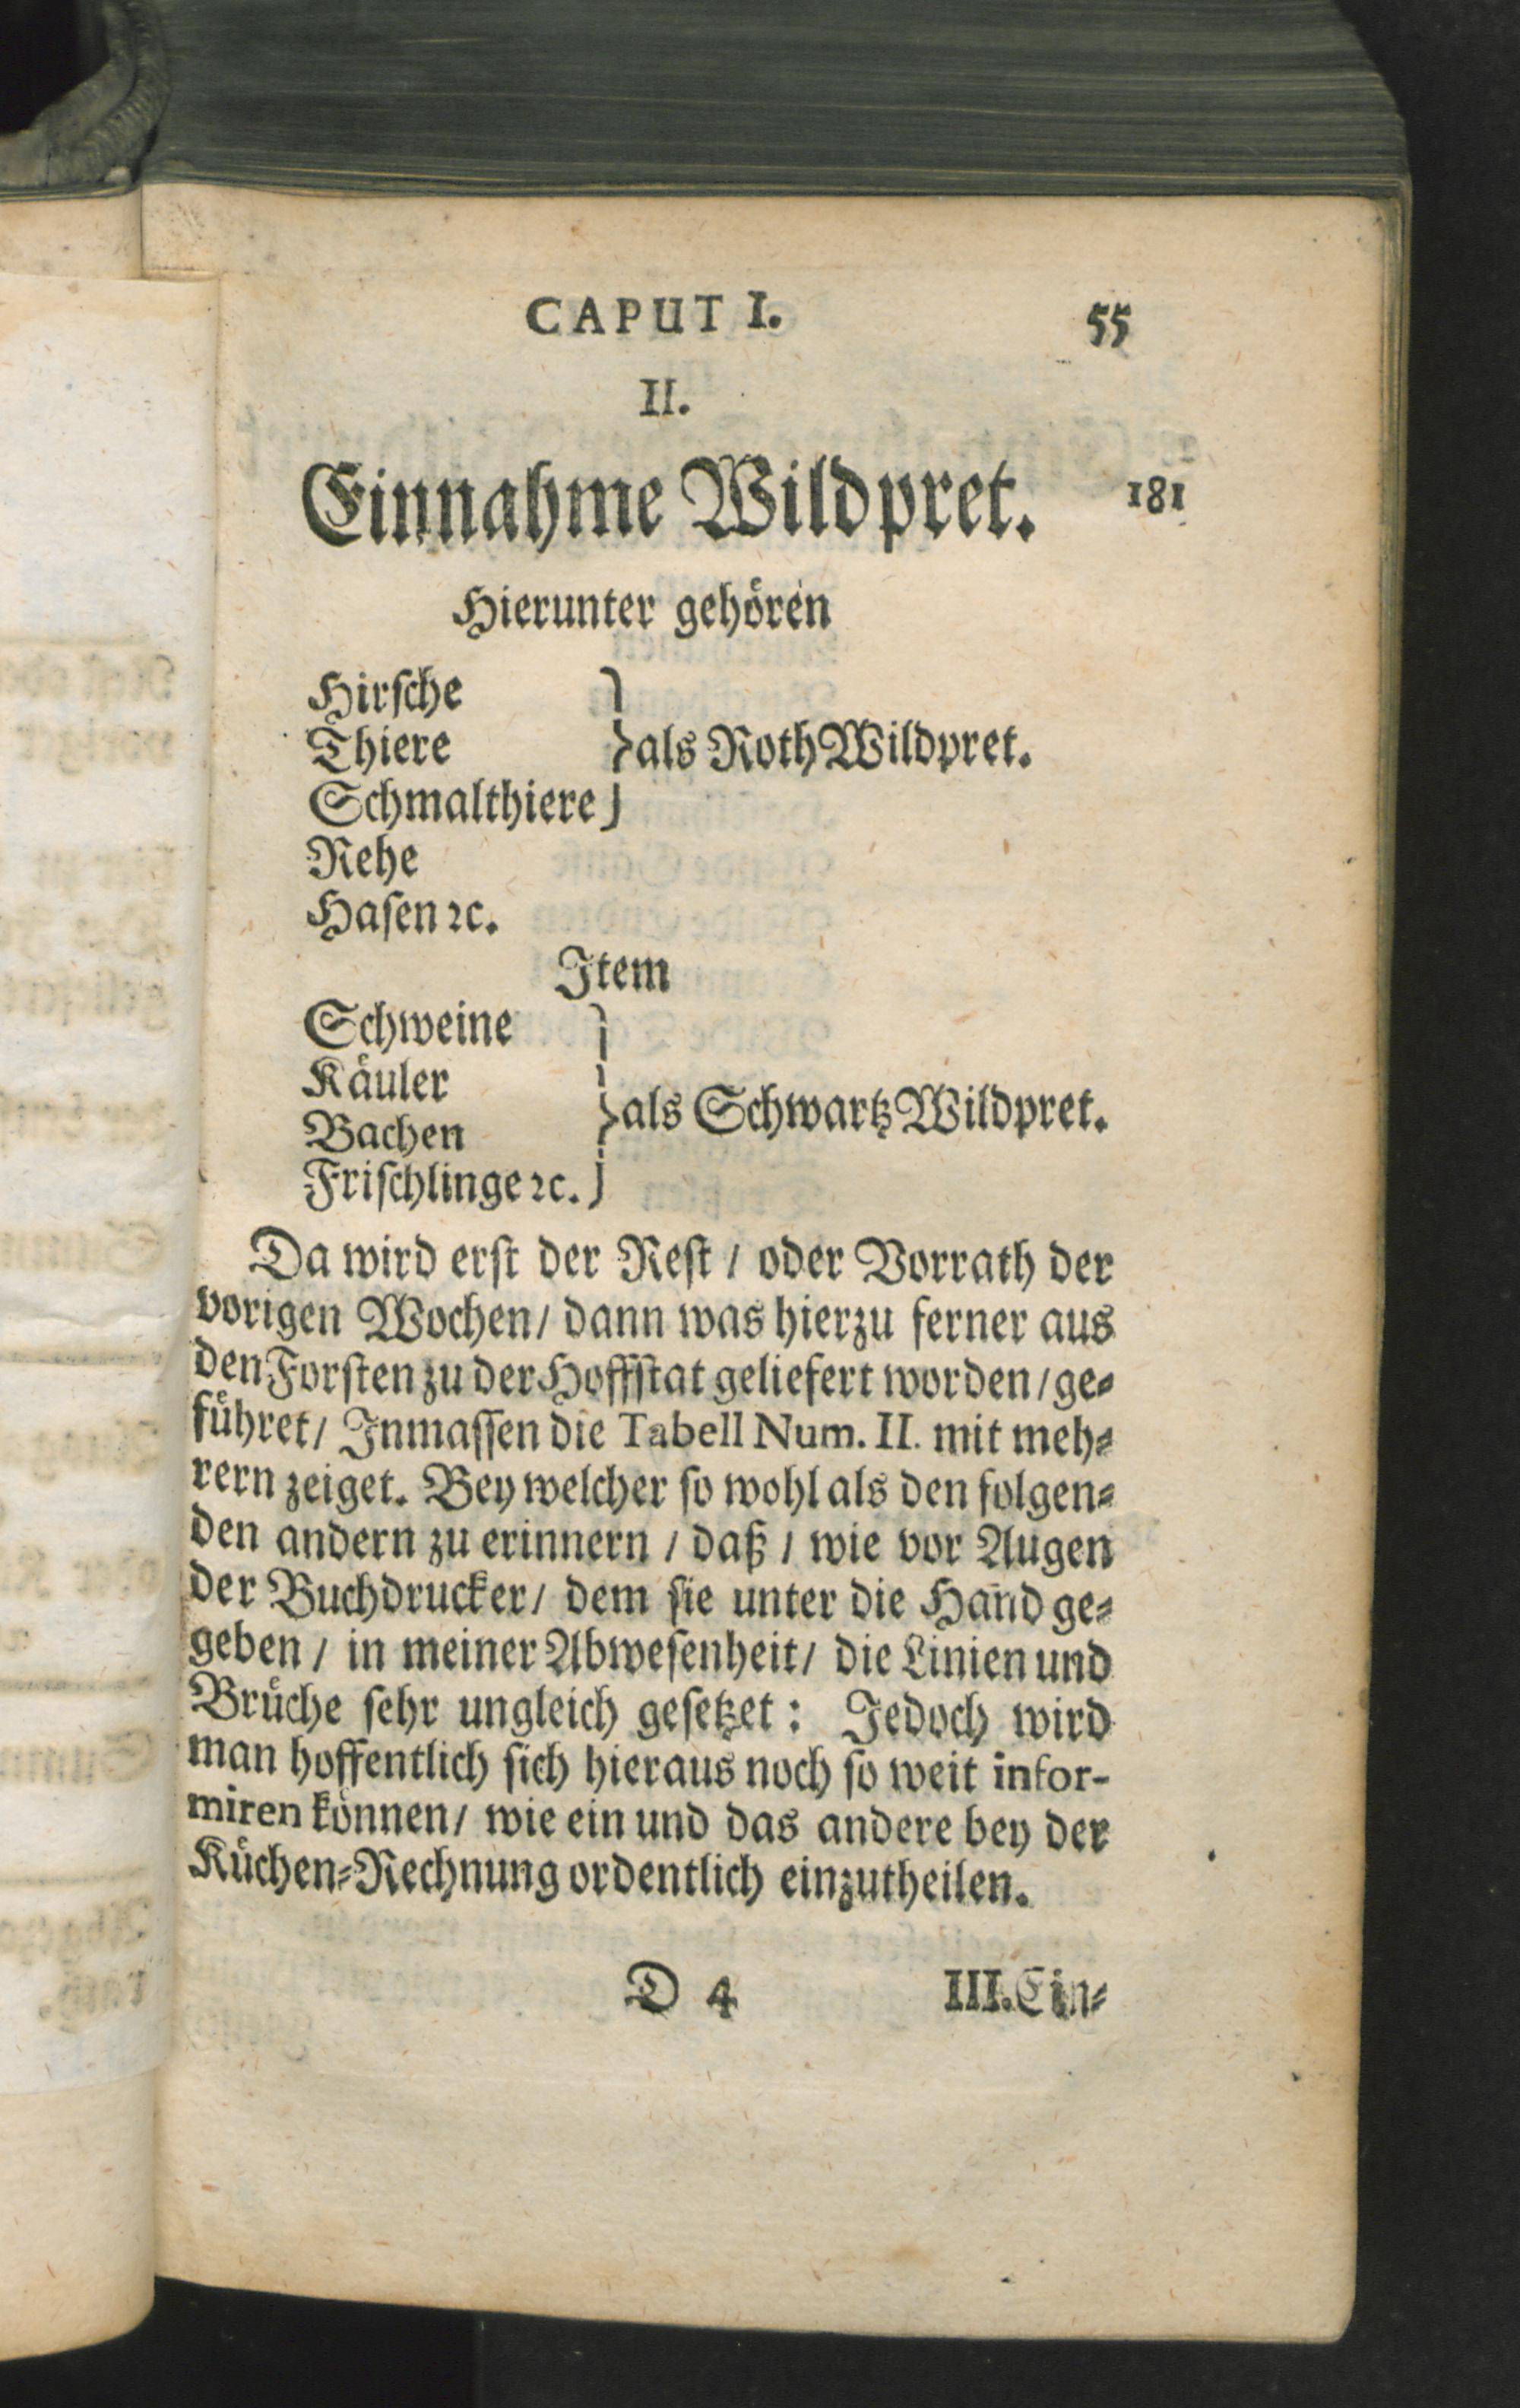 CAPUT I. 55
II.
Einnahme Wildpret. 181
Hierunter gehören
Hirſche
Thiere } als Roth Wildpret.
Schmalthiere
Rehe
Haſen ꝛc.
Item
Schweine
Käuler
Bachen } als Schwartz Wildpret.
Friſchlinge ꝛc.
Da wird erſt der Reſt / oder Vorrath der
vorigen Wochen / dann was hierzu ferner aus
den Forſten zu der Hoffſtat geliefert worden / ge⸗
führet / Inmaſſen die Tabell Num. II. mit meh⸗
rern zeiget. Bey welcher ſo wohl als den folgen⸗
den andern zu erinnern / daß / wie vor Augen
der Buchdrucker / dem ſie unter die Hand ge⸗
geben / in meiner Abweſenheit / die Linien und
Brüche ſehr ungleich geſetzet : Jedoch wird
man hoffentlich ſich hieraus noch ſo weit infor-
miren können / wie ein und das andere bey der
Küchen⸗Rechnung ordentlich einzutheilen.
D 4 III. Ein⸗